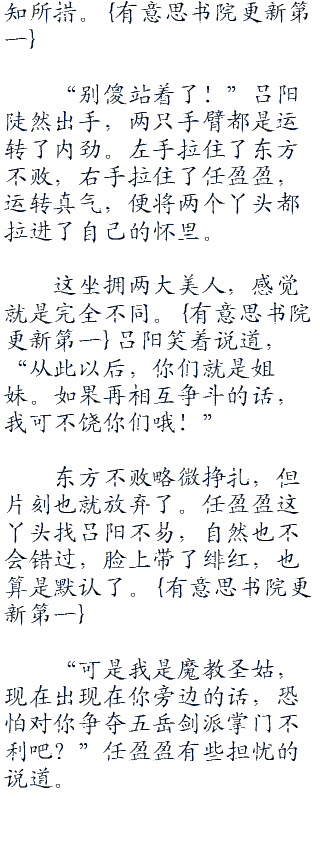 知所措。{有意思书院更新第
一}
“别傻站着了！”吕阳
陡然出手，两只手臂都是运
转了内劲。左手拉住了东方
不败，右手拉住了任盈盈，
运转真气，便将两个丫头都
拉进了自己的怀里。
这坐拥两大美人，感觉
就是完全不同。{有意思书院
更新第一}吕阳笑着说道，
“从此以后，你们就是姐
妹。如果再相互争斗的话，
我可不饶你们哦！”
东方不败略微挣扎，但
片刻也就放弃了。任盈盈这
丫头找吕阳不易，自然也不
会错过，脸上带了绯红，也
算是默认了。{有意思书院更
新第一}
“可是我是魔教圣姑，
现在出现在你旁边的话，恐
怕对你争夺五岳剑派掌门不
利吧？”任盈盈有些担忧的
说道。